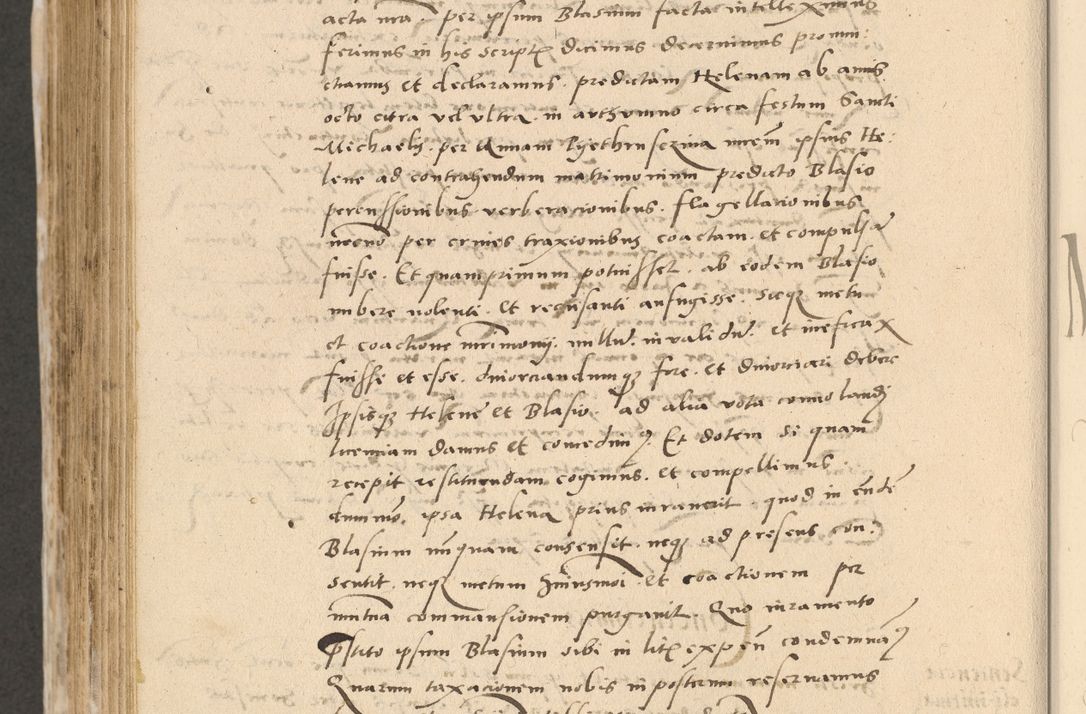 acta nra. per ipsum Blasium facta intelleximus
ferimus in his script dicimus decernimus pronun:
ctiamus et declaramus. predictam Helenam ab annis
octo citra vel ultra. in authumno circa festum Sancti
Michaelis. per Annam mrem ipsius He:
lene ad contrahendum matrimonium predicto Blasio
percussionibus verberacionibus. flagellacionibus
necno per crines traxionibus coactam. et compulsa
fuisse. Et quamprimum potuisset. ab eodem Blasio
nubere nolenti. Et recusanti aufugisse. sicq metu
et coactione mrimonij. nullu. invalidu. et inefficax
fuisse et esse. divorciandumq fore. et divorciari debere
Ipsisq Helene et Blasio. ad alia vota convolandj
licenciam damus et concedim9 Et dotem si quam
recepit restituendam cogimus. et compellimus.
dummo. ipsa Helena prius iuraverit. quod in eude
Blasium nunquam consensit. neq ad presens con:
sentit. neq metum huiusmoi. et coactionem per
mutua commansionem purgavit. Quo iuramento
pstito ipsum Blasium sibi in lit expen condemnam9
Quarum taxacionem nobis in posterum reservamus